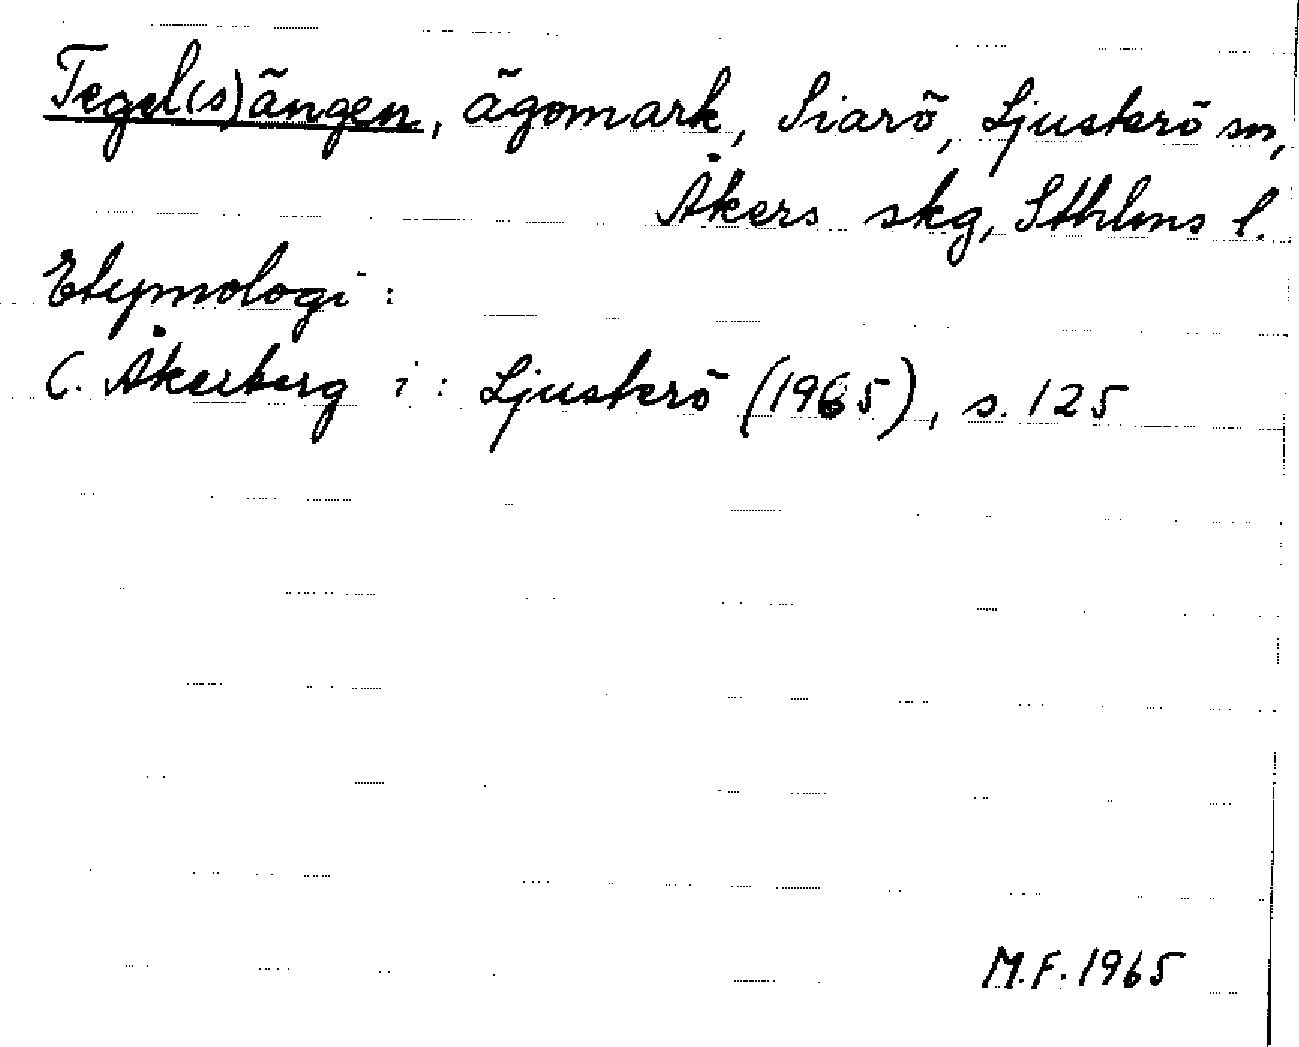 Tegel(s)ängen, ägomark, Siarö, Ljusterö sn,
Åkers skg, Sthlms l.
Etymologi:
C. Åkerberg i: Ljusterö (1965), s. 125
M.F. 1965